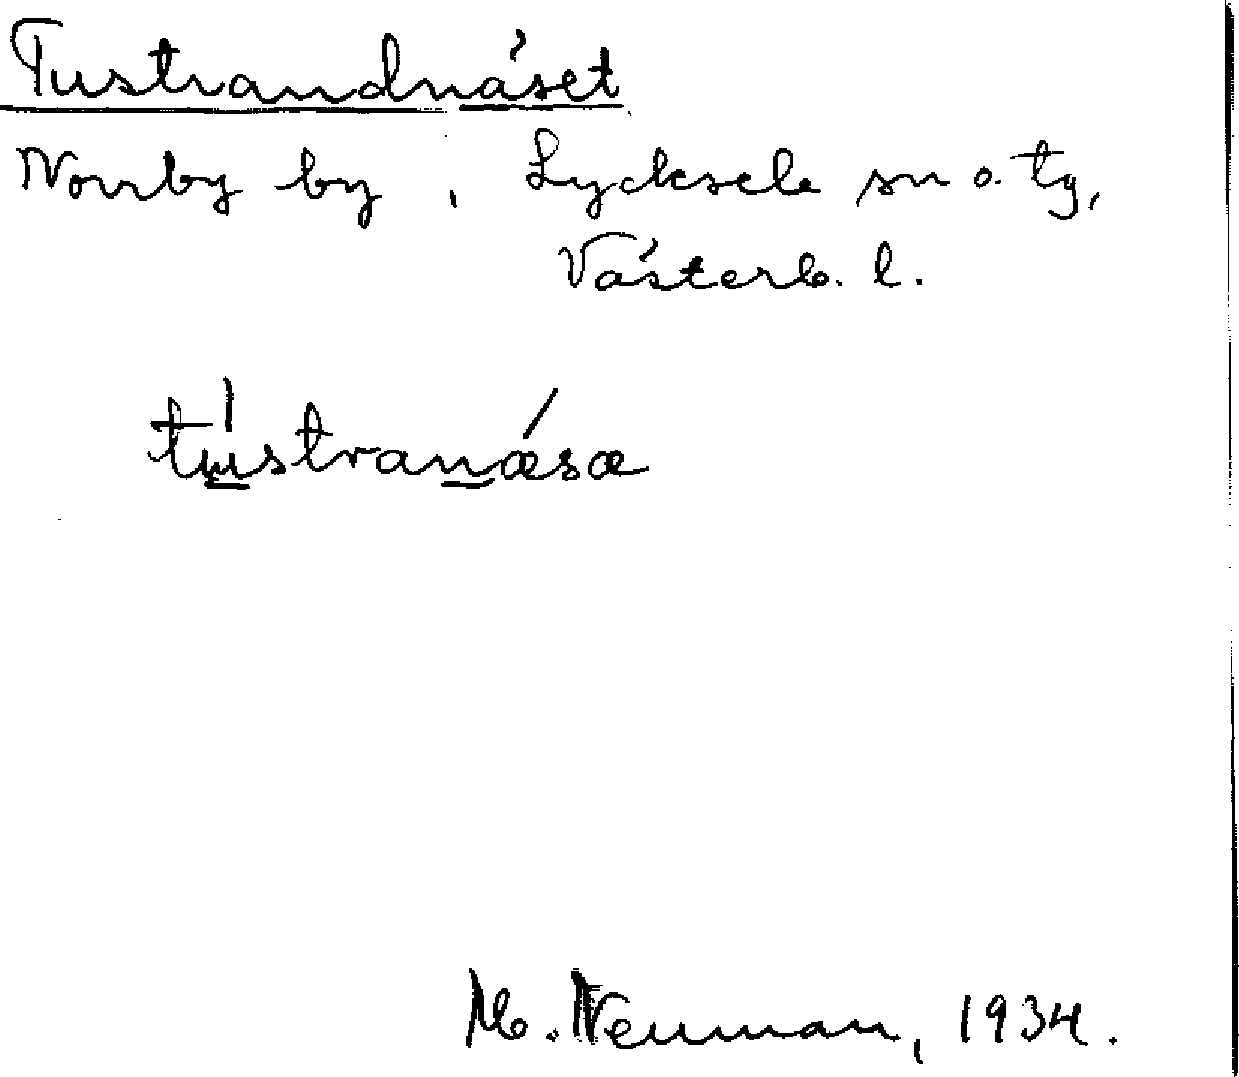 Tustrandnäset
Norrby by, Lycksele sn o. tg,
Västerb. l.
tústranǽsæ
M. Neuman, 1934.